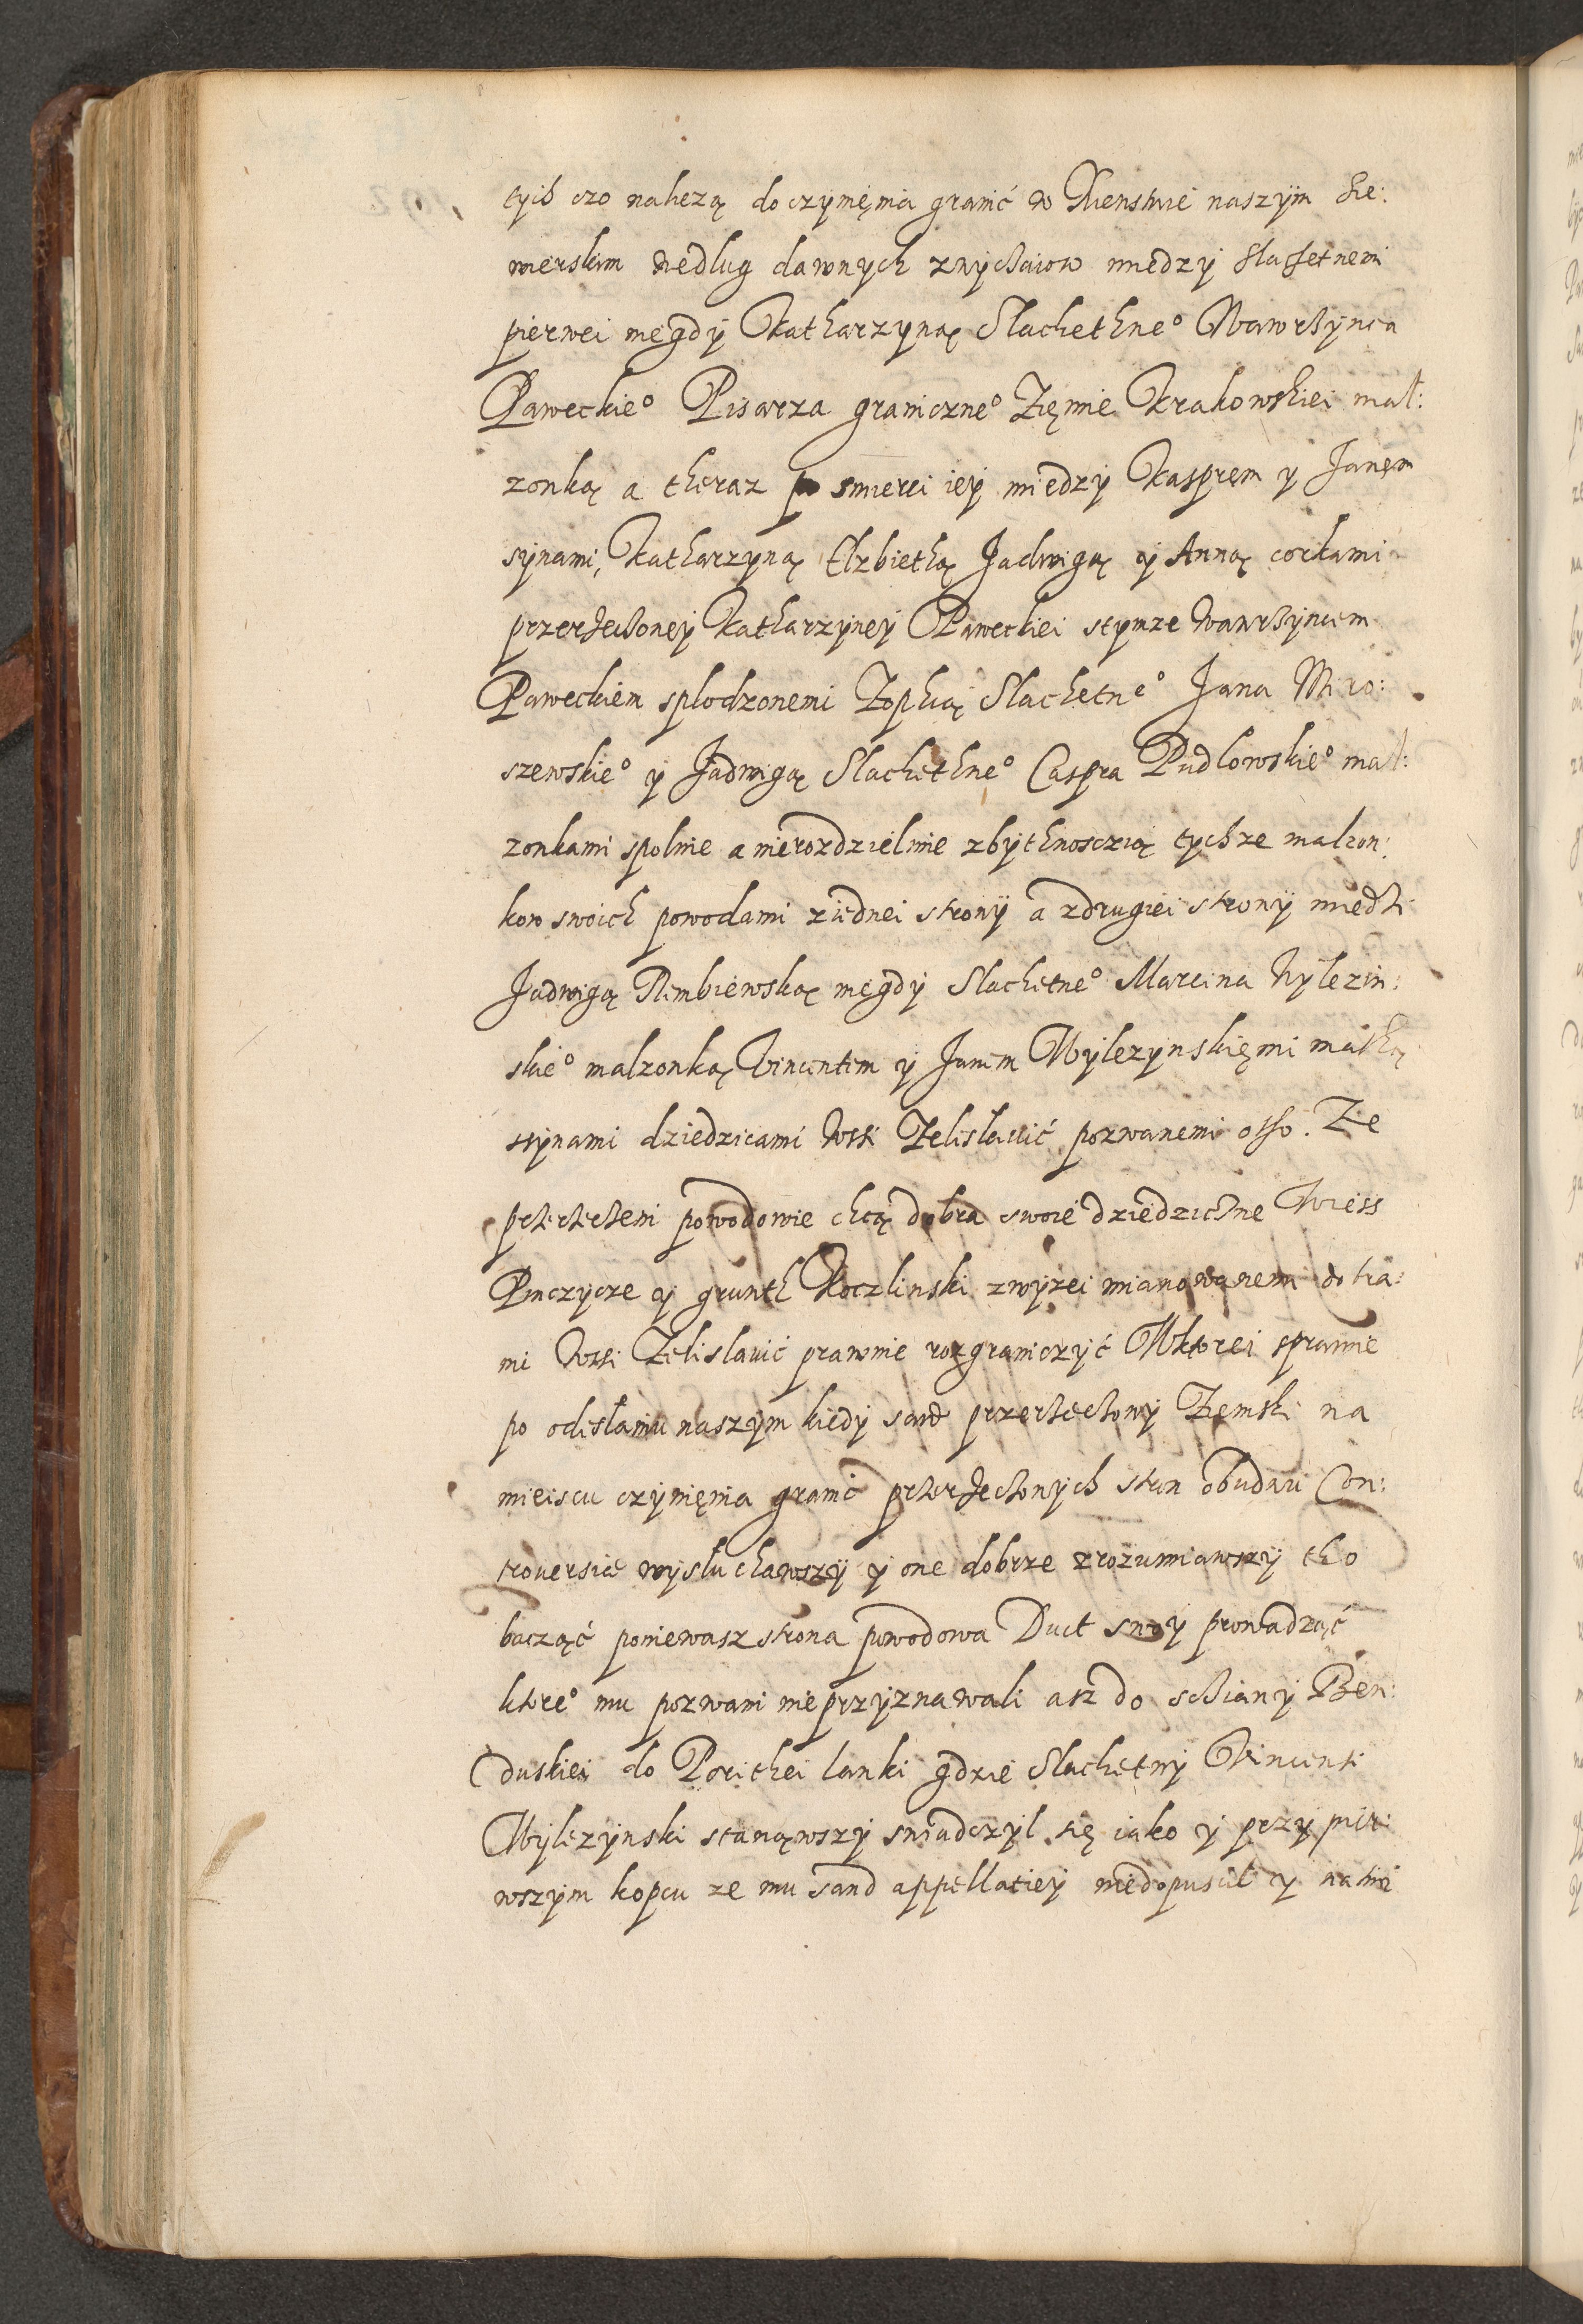 tych czo nalezą do czynięnia granić w Xienstwie naszym Sie:
wierskim wedlug dawnych zwyczaiow miedzy slachetnemi
pierwei niegdy Katharzyną Slachethne° Wawrzynca
Paweckie° Pisarza graniczne° Zięmie Krakowskiei mał:
zonką a theraz po smierci iey miedzy Kasprem y Janęm
synami, Katharzyną Elzbiethą Jadwigą y Anną corkami
przerzeczoney Katharzyney Paweckiei stymze Wawrzyncem
Paweckiem splodzonemi Zophią Slachetne° Jana Miro:
szewskie° y Jadwigą Slachethne° Caspra Pudlowskie° mał:
zonkami spolnie a nierozdzielnie zbythnosczią tychze malzon:
kow swoich powodami ziednei strony a zdrugiei strony miedzi
Jadwigą Rembiewską niegdy Slachetne° Marcina Wylezin:
skie° malzonką Vincentim y Janem Wylezynskięmi mathą
synami dziedzicami wssi Zelislawić pozwanemi otho. Ze
przerzeczeni powodowie chcą dobra swoie dziedziczne Wiess
Pinczycze y grunth Koczlinski zwyzei mianowanemi dobra:
mi wssi Zelislavić prawnie rozgraniczyć Wktorei sprawie
po odesłaniu naszym kiedy sand przerzeczony Ziemski na
mieiscu czynięnia granić przerzeczonych stron obudwu Con:
trouersie wysluchawszy y one dobrze zrozumiawszy tho
bacząć poniewasz strona powodowa Duct swoy prowadząć
ktore° mu pozwani nieprzyznawali asz do scziany Ben:
duskiei do Porithei lanki gdzie Slachetny Vincenti
Wylezynski stanąwszy swiadczyl się iako y przy pier:
wszym kopcu ze mu sand appellatiey niedopuscil y na tim